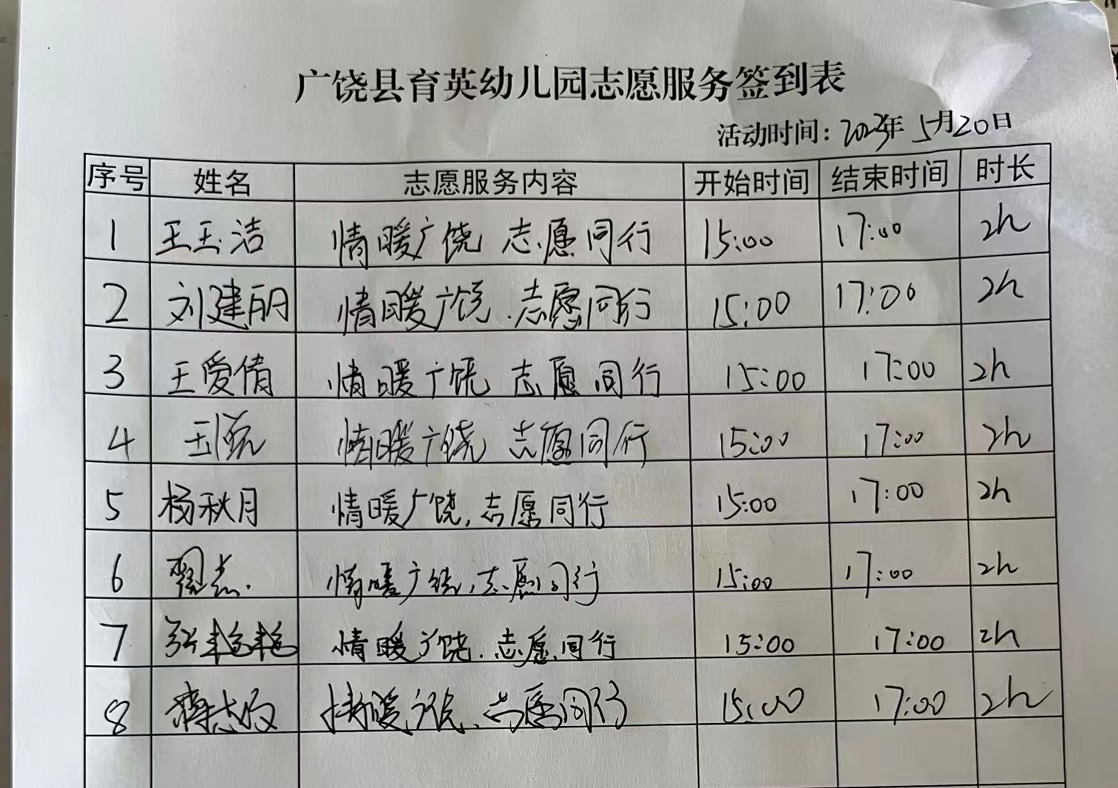 广饶县育英幼儿园志愿服务签到表
活动时间：2023年 5月20日
序号 姓名 志愿服务内容 开始时间 结束时间 时长
1 王玉洁 情暖广饶 志愿同行 15:00 17:00 2h
2 刘建丽 情暖广饶.志愿同行 15:00 17:00 2h
3 王爱倩 情暖广饶 志愿同行 15:00 17:00 2h
4 情暖广饶 志愿同行 15:00 17:00 2h
5 杨秋月 情暖广饶,志愿同行 15:00 17:00 2h
6 情暖广饶,志愿同行 15:00 17:00 2h
7 张艳艳 情暖广饶.志愿同行 15:00 17:00 2h
8 情暖广饶.志愿同行 15:00 17:00 2h